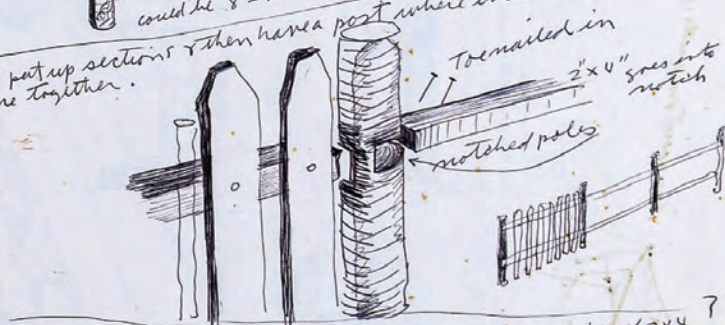 could be 8
put up sections & then have a post where
together.
Toenailed in
2" x 4" goes into
notch
notched poles
?